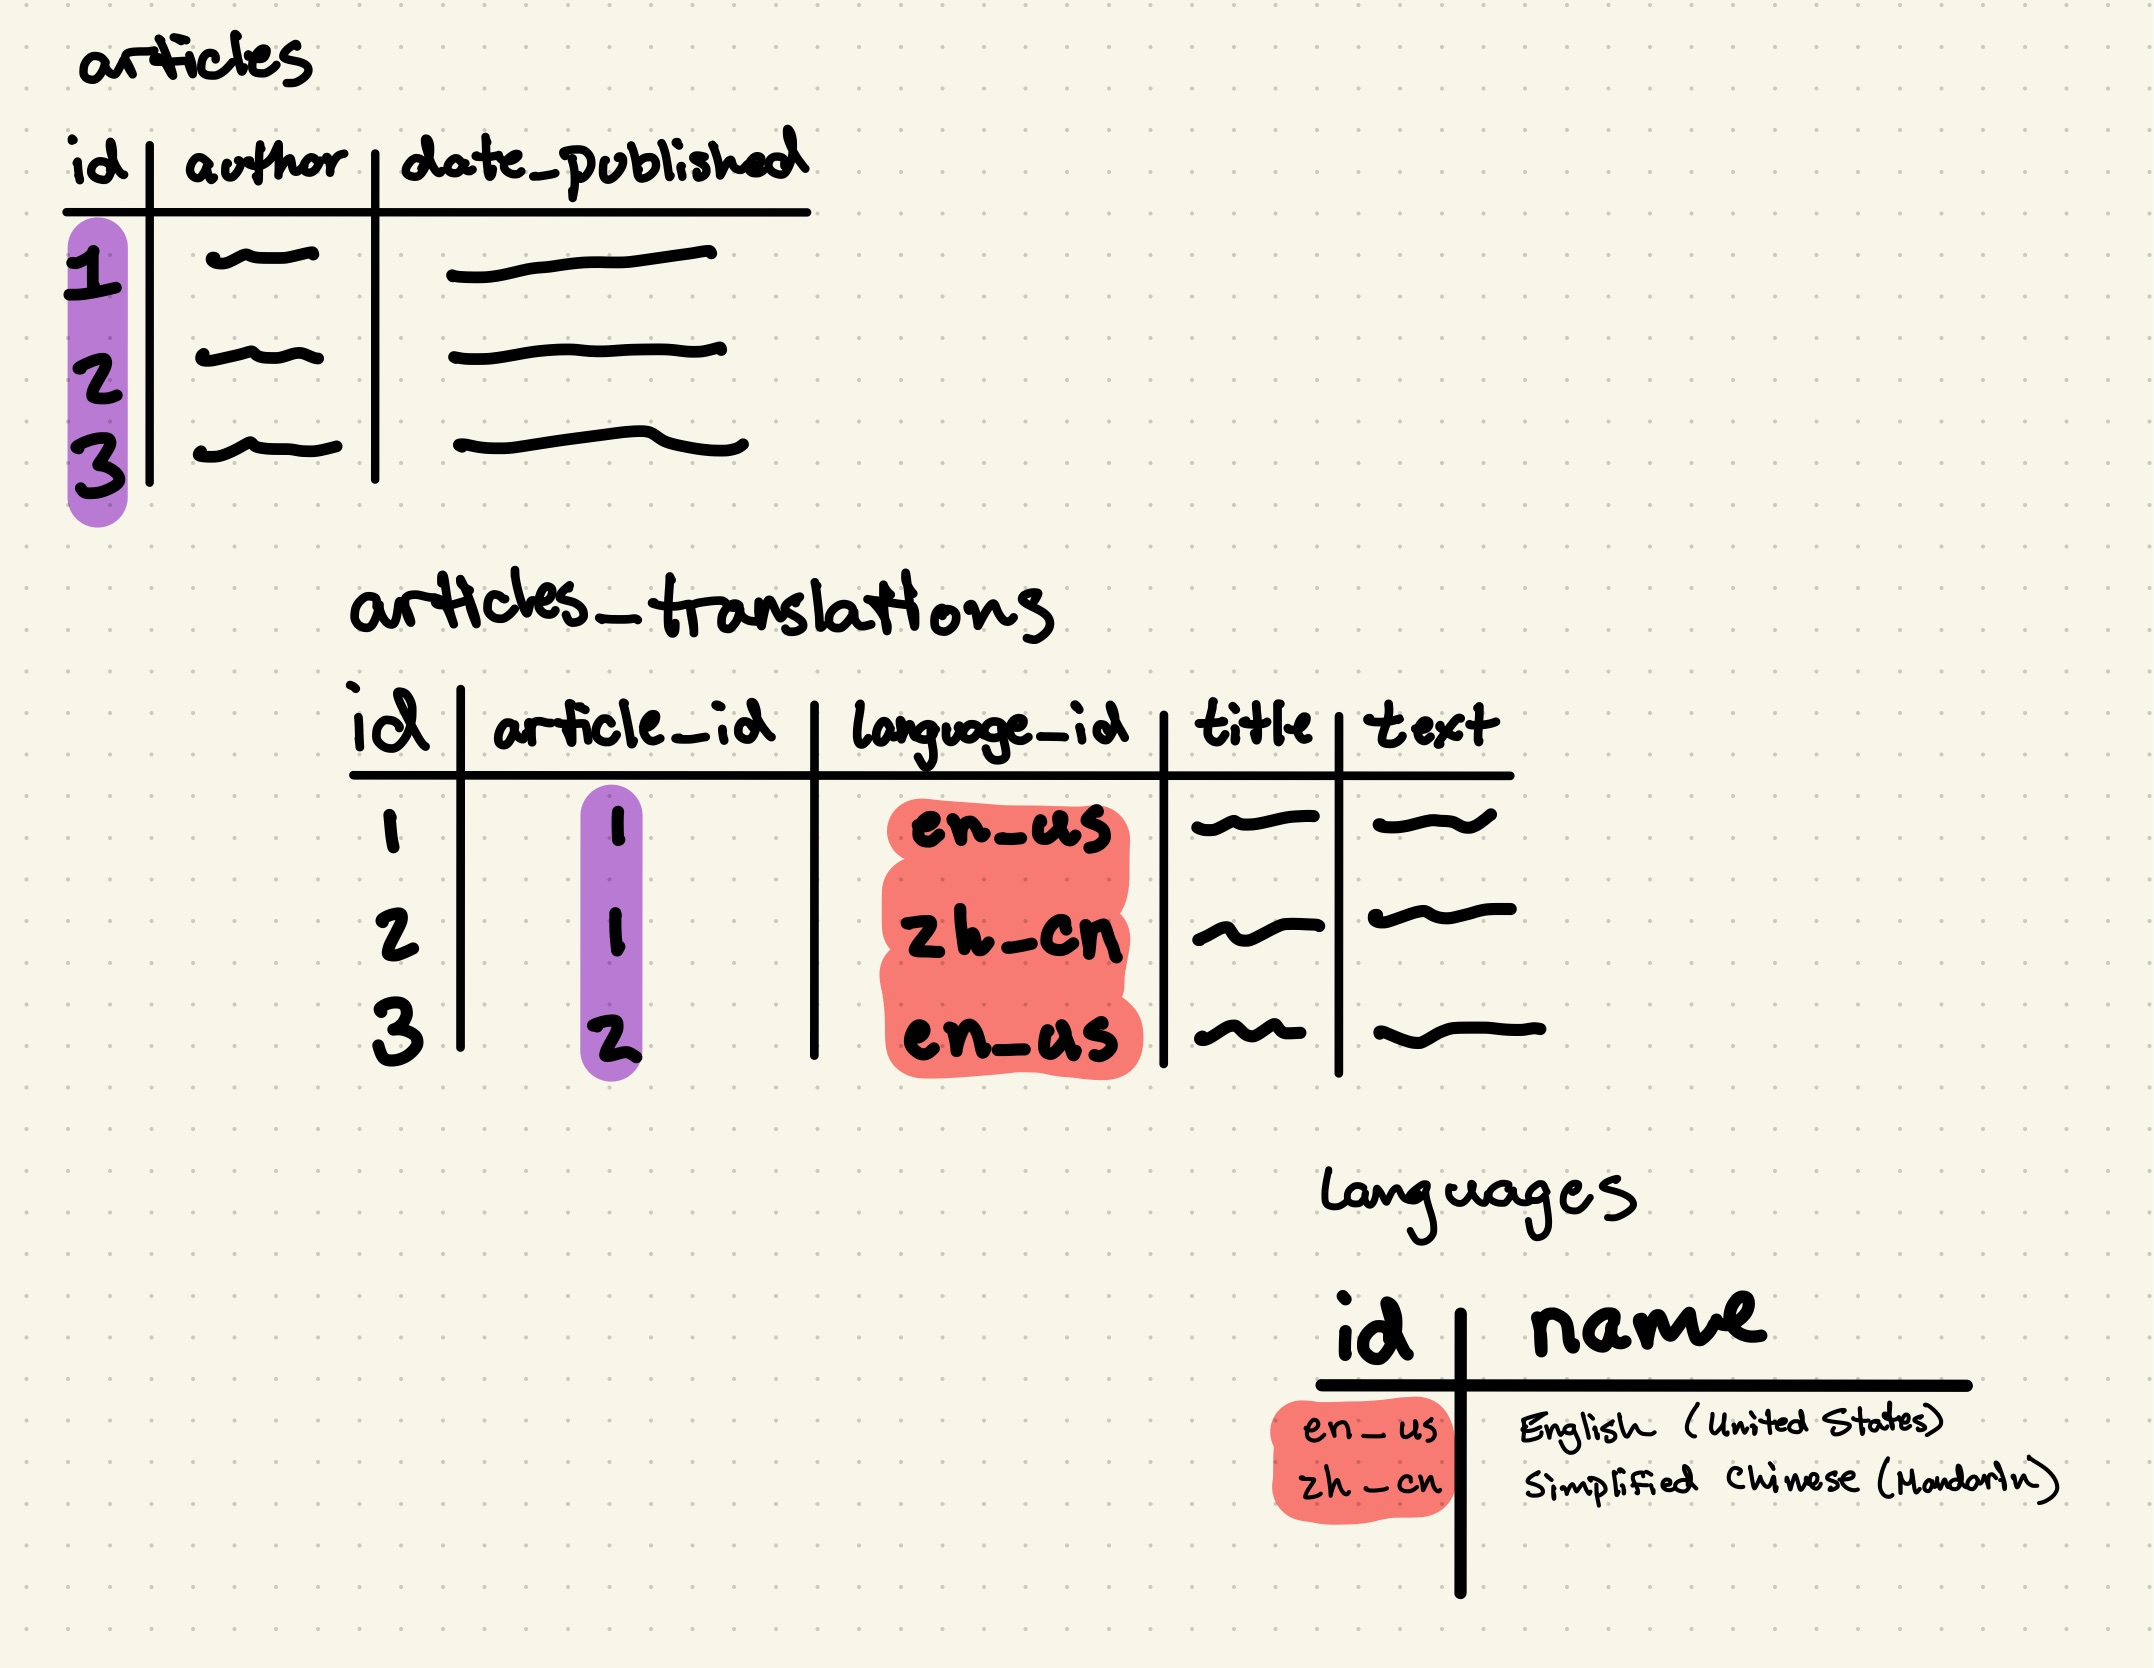 articles
id author date_published
1
2
3
articles_translations
id article_id language_id title text
1 1 en_us
2 1 zh_cn
3 2 en_us
languages
id name
en_us English (United States)
zh_cn Simplified Chinese (Mandarin)